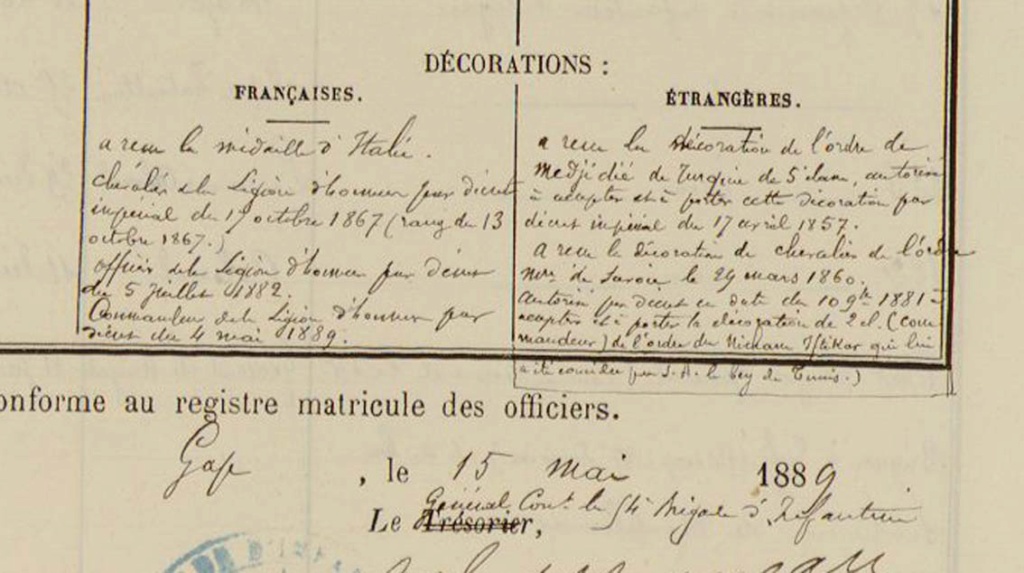 DÉCORATIONS :
FRANÇAISES.
a reçu la médaille d'Italie.
chevalier de la Légion d'honneur par décret
impérial du 19 octobre 1867 (rang du 13
octobre 1867.)
officier de la Légion d'honneur par décret
du 5 juillet 1882.
Commandeur de la Légion d'honneur par
décret du 4 mai 1889.
ÉTRANGÈRES.
a reçu la décoration de l'ordre du
Medjidié de Turquie de 5e classe, autorisé
à accepter et à porter cette décoration par
décret impérial du 17 avril 1857.
A reçu la décoration de chevalier de l'ordre
mre de Savoie le 29 mars 1860.
autorisé par décret en date du 10 9bre 1881 à
accepter et à porter la décoration de 2e cl. (com
mandeur) de l'ordre du Nicham Iftikar qui lui
a été conférée par S. A. le bey de Tunis.)
onforme au registre matricule des officiers.
Gap, le 15 mai 1889
Général Comt la brigade d'Infanterie
Le Trésorier,